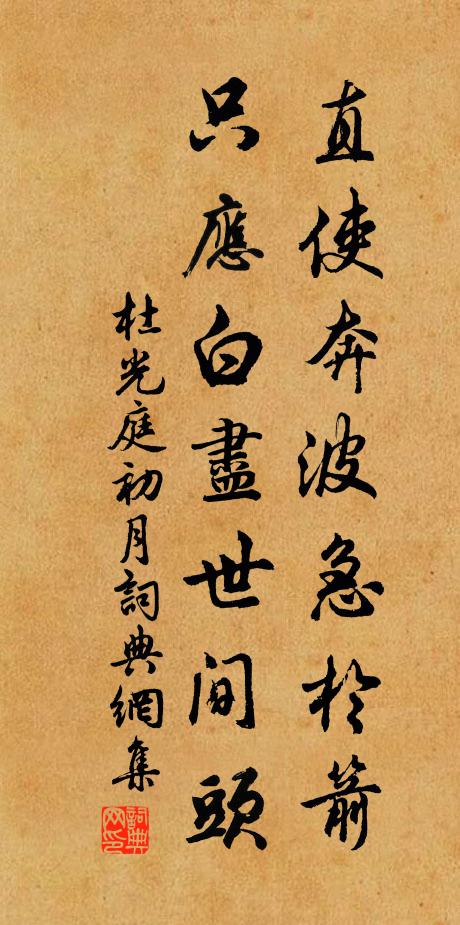 直使奔波急於箭
只應白盡世間頭
杜光庭初月詞典網集
詞典網印